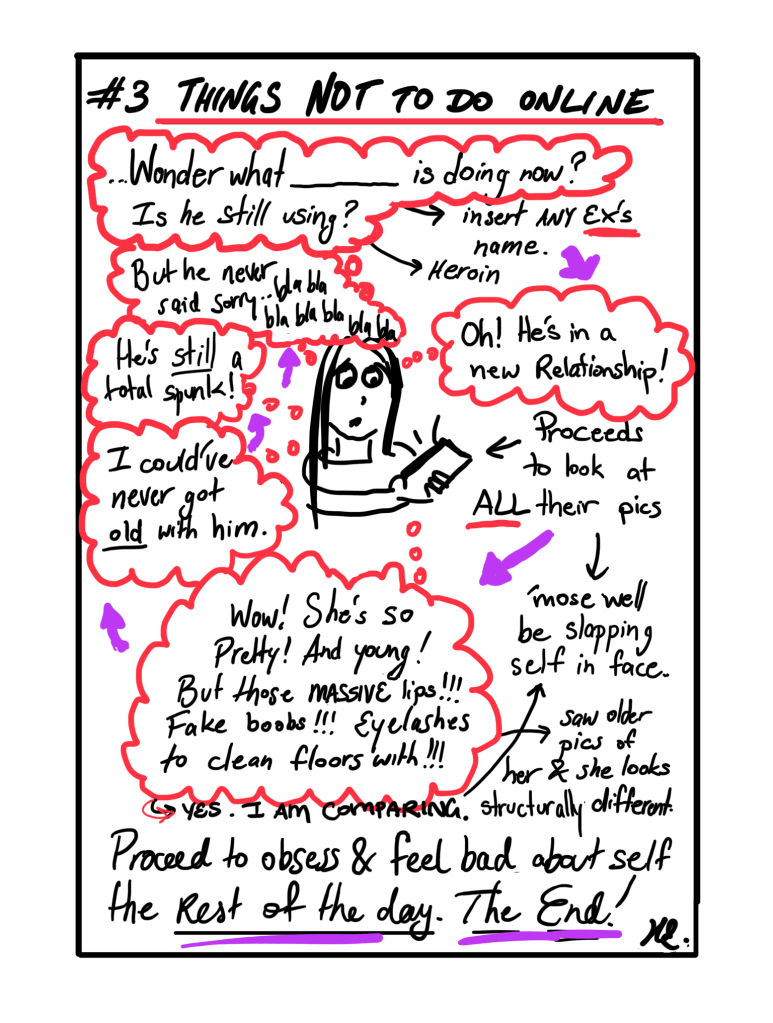 #3 THINGS NOT TO DO ONLINE
...Wonder what ________ is doing now?
Is he still using?
insert ANY EX's
name.
Heroin
Oh! He's in a
new Relationship!
Proceeds
to look at
ALL their pics
'mose well
be slapping
self in face..
Wow! She's so
Pretty! And young!
But those MASSIVE lips!!!
Fake boobs!!! Eyelashes
to clean floors with!!!
saw older
pics of
her & she looks
structurally different.
YES. I AM COMPARING.
I could've
never got
old with him.
He's still a
total spunk!
But he never
said sorry...bla bla
bla bla bla
bla bla
Proceed to obsess & feel bad about self
the Rest of the day. The End!